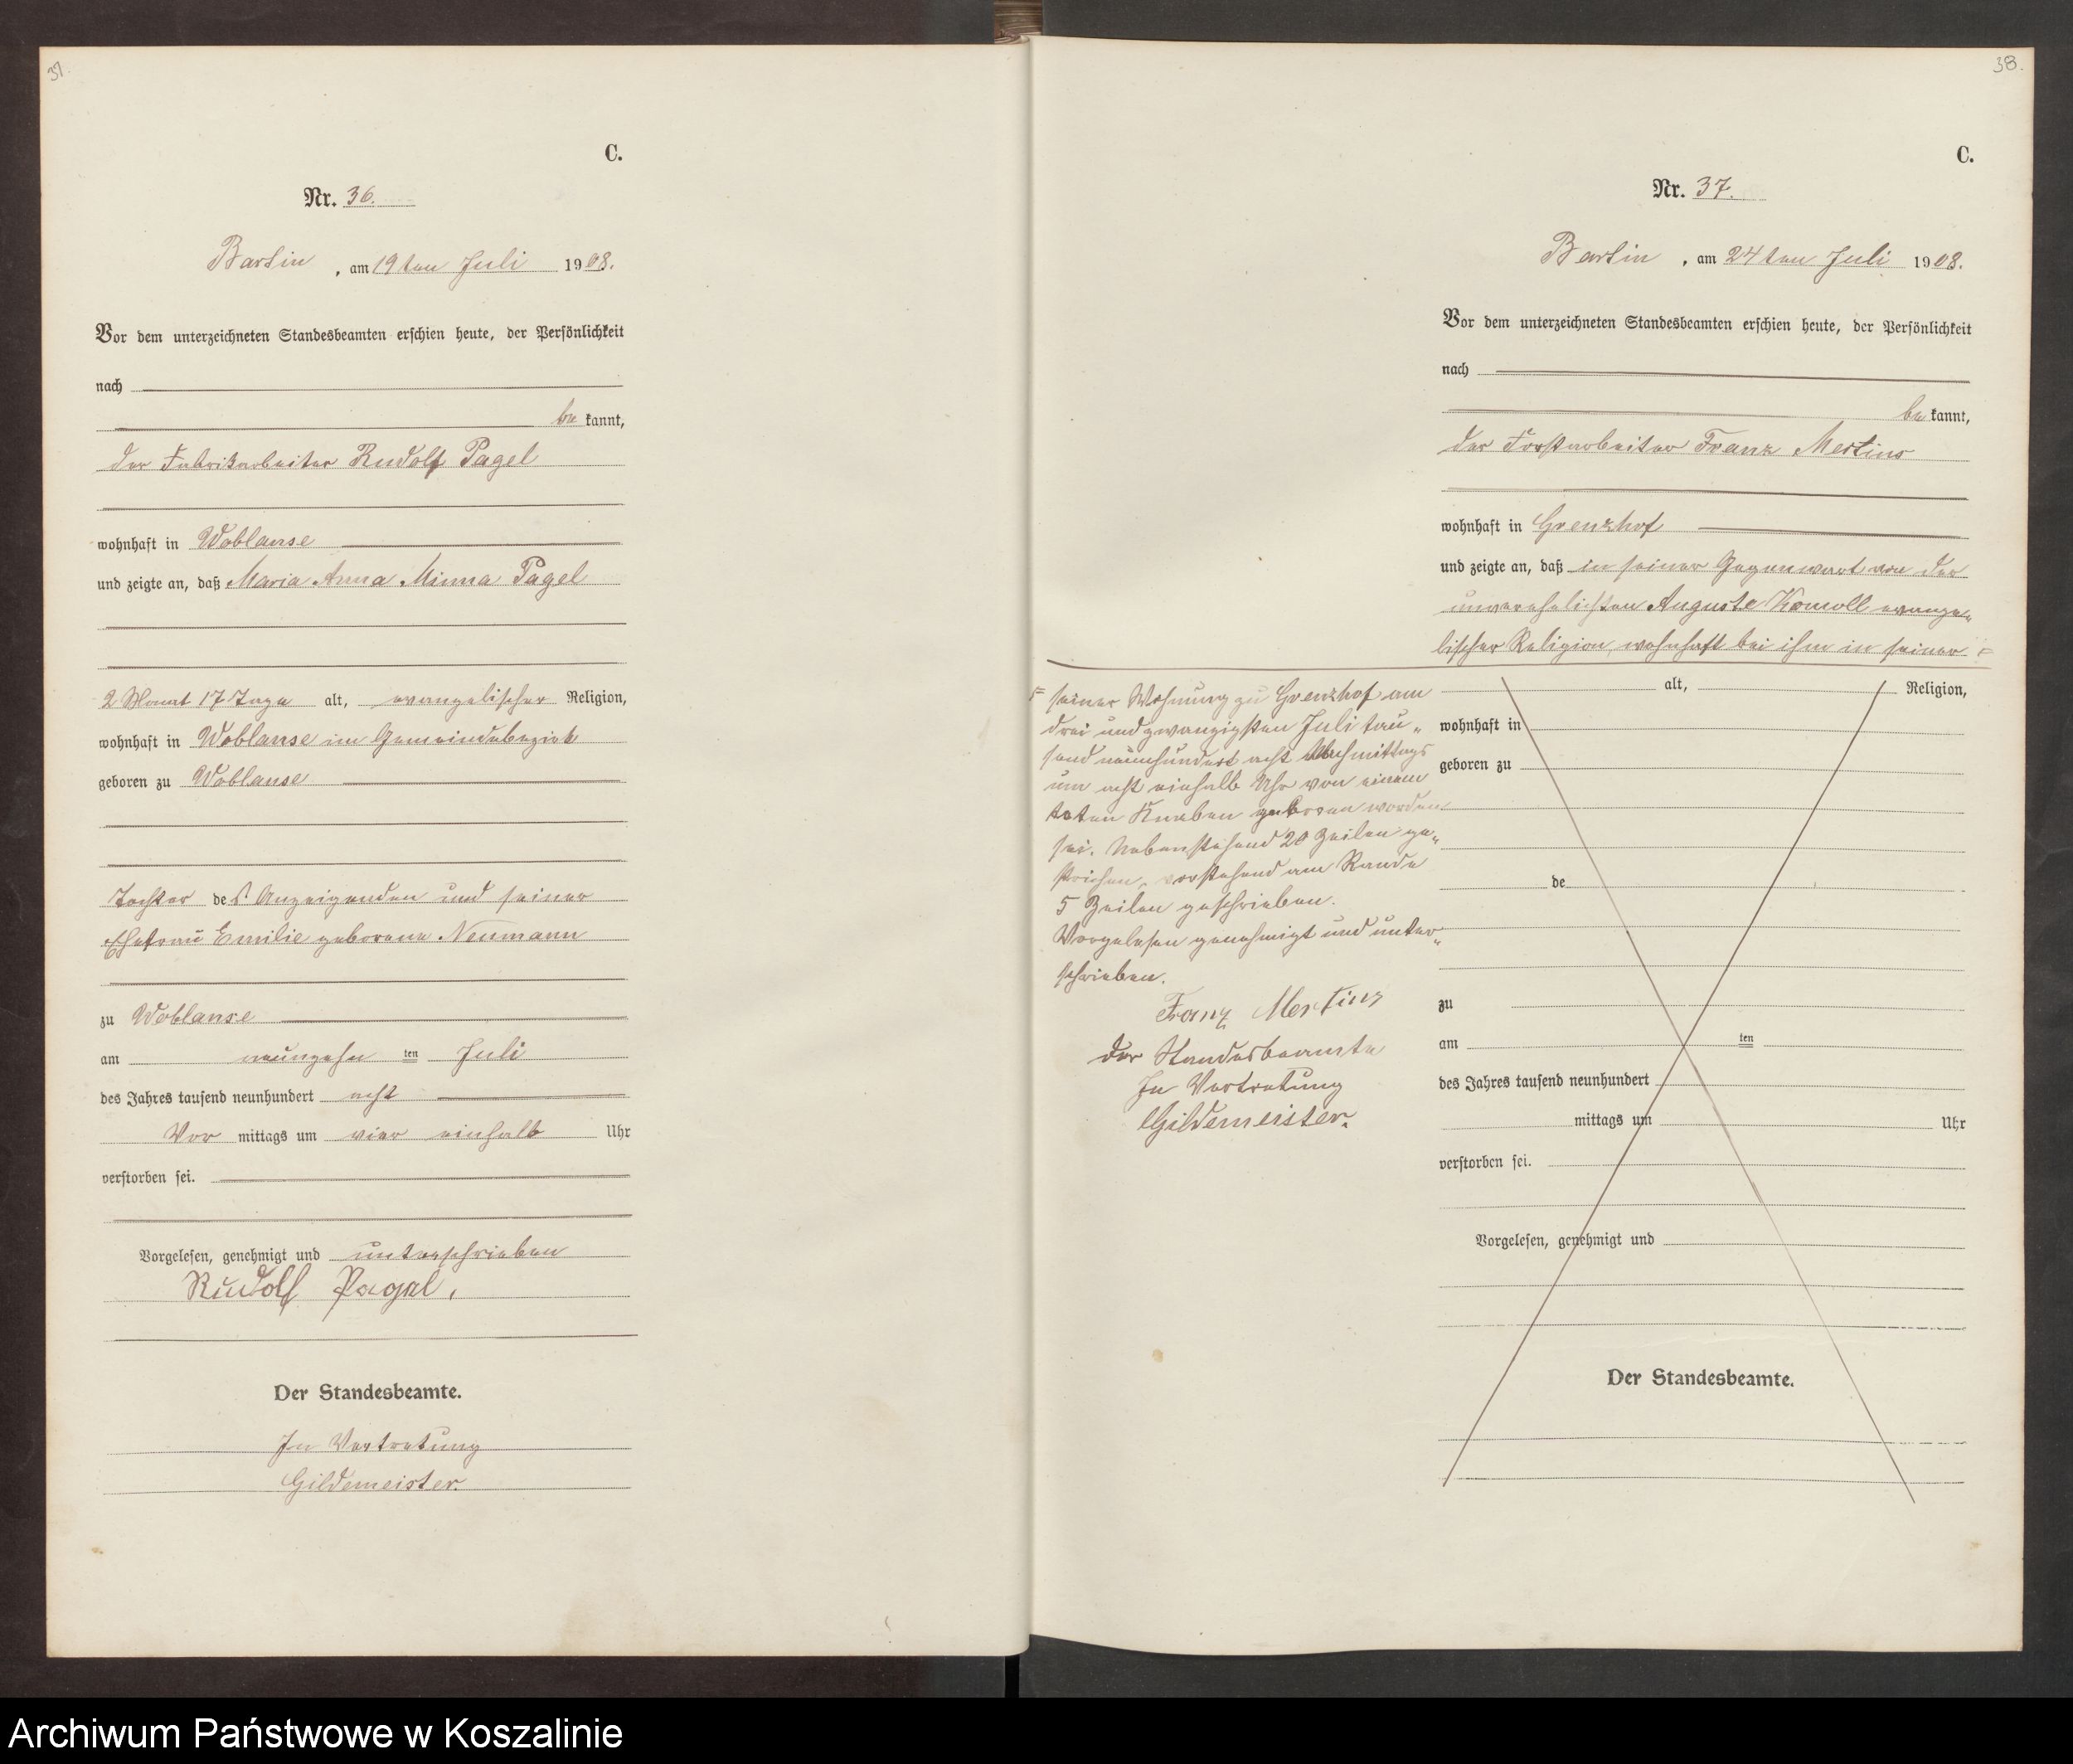 37.
C.
Nr. 36.
Bartin, am 19ten Juli 1908.
Vor dem unterzeichneten Standesbeamten erschien heute, der Persönlichkeit
nach
be kannt,
der Fabrikarbeiter Rudolf Pagel
wohnhaft in Woblanse
und zeigte an, daß Maria Anna Minna Pagel
2 Monat 17 Tage alt, evangelischer Religion,
wohnhaft in Woblanse im Gemeindebezirk
geboren zu Woblanse
Tochter des Anzeigenden und seiner
Ehefrau Emilie geborene Neumann
zu Woblanse
am neunzehn ten Juli
des Jahres tausend neunhundert acht
Vor mittags um vier einhalb Uhr
verstorben sei.
Vorgelesen, genehmigt und unterschrieben
Rudolf Pagel.
Der Standesbeamte.
In Vertretung
Gildemeister.
38.
C.
Nr. 37.
Bartin, am 24ten Juli 1908.
Vor dem unterzeichneten Standesbeamten erschien heute, der Persönlichkeit
nach
be kannt,
der Forstarbeiter Franz Mertins
wohnhaft in Grenzhof
und zeigte an, daß in seiner Gegenwart von der
unverehelichten Auguste Komoll evange„
lischer Religion, wohnhaft bei ihm in seiner
seiner Wohnung zu Grenzhof am
drei und zwanzigsten Juli tau„
send neunhundert acht Nachmittags
um acht einhalb Uhr von einem
toten Knaben geboren worden
sei. Nebenstehend 20 Zeilen ge„
strichen, vorstehend am Rande
5 Zeilen geschrieben.
Vorgelesen genehmigt und unter„
schrieben.
Franz Mertins
Der Standesbeamte
In Vertretung
Gildemeister.
alt, Religion,
wohnhaft in
geboren zu
de
zu
am ten
des Jahres tausend neunhundert
mittags um Uhr
verstorben sei.
Vorgelesen, genehmigt und
Der Standesbeamte.
Archiwum Państwowe w Koszalinie